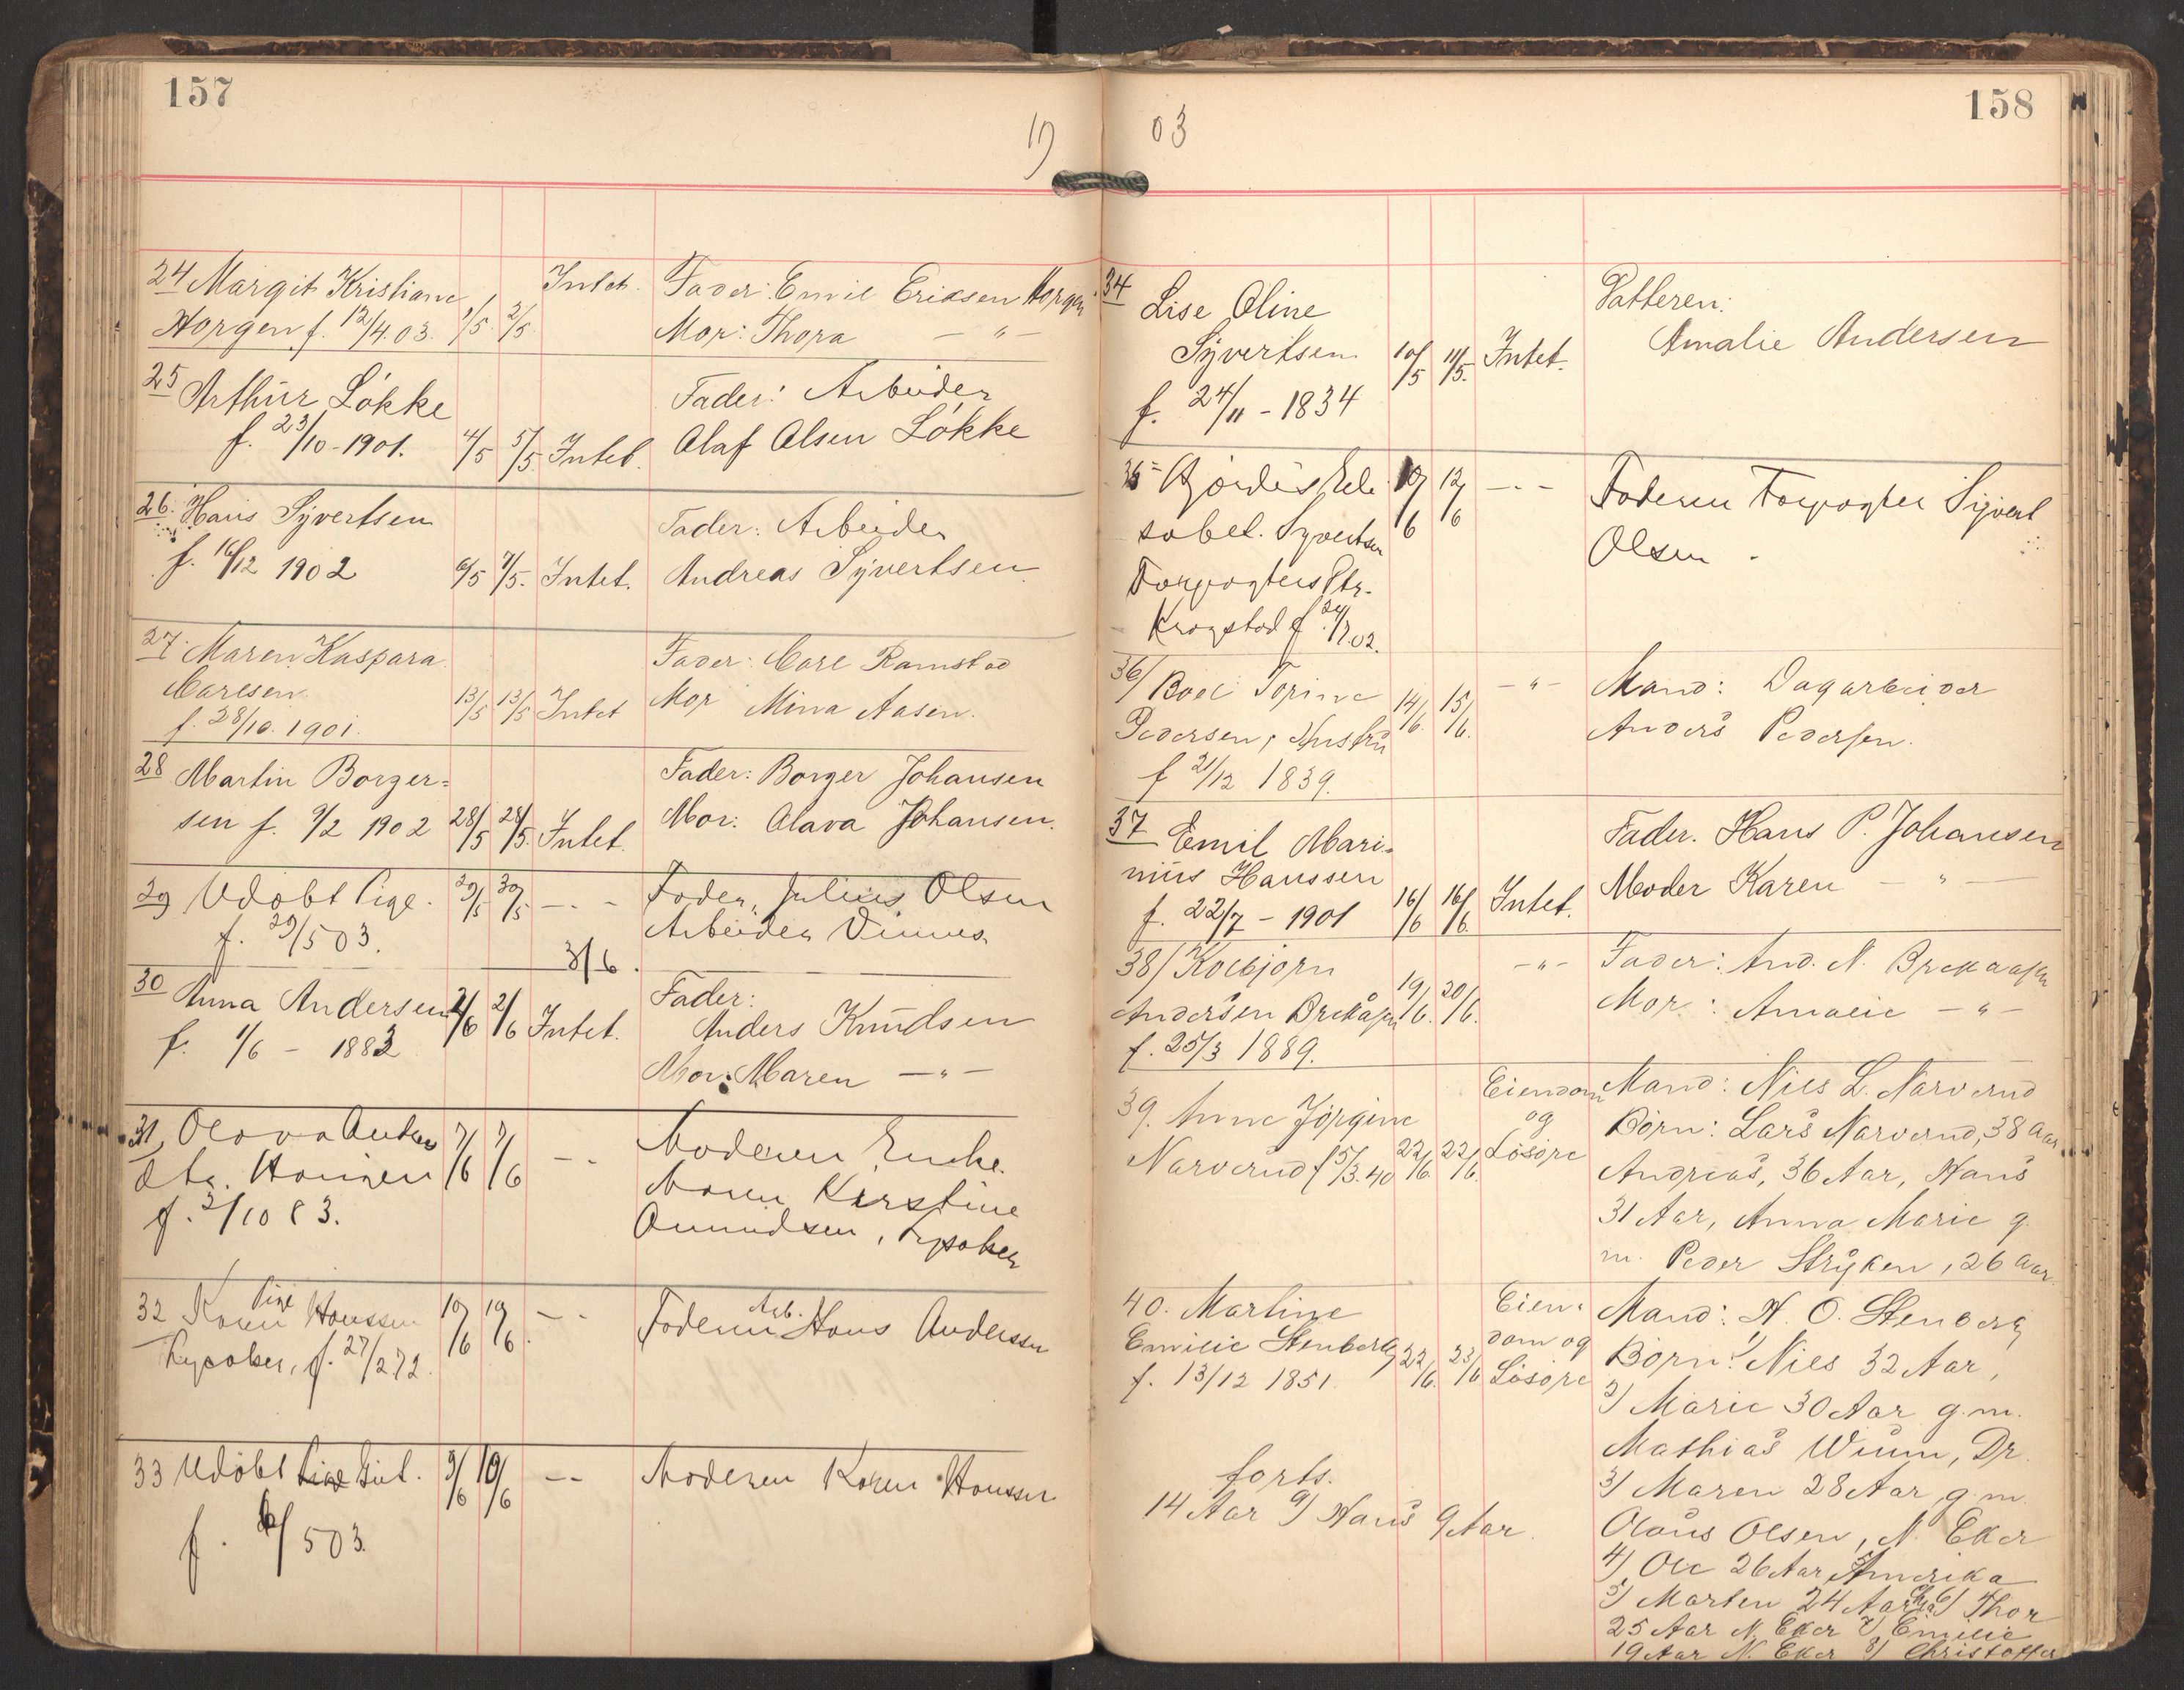 157
19
24 Margit Kristiane
Horgen f. 12/4.03. 1/5. 2/5. Intet. Fader: Emil Eriksen Horgen
Mor: Thora — " —
25 Arthur Lökke
f. 23/10-1901. 4/5 5/5. Intet. Fader: Arbeider
Olaf Olsen Lökke
26. Hans Syvertsen
f. 16/12 1902 6/5 7/5. Intet. Fader: Arbeider
Andreas Syvertsen
27. Maren Kaspara
Carlsen
f. 28/10. 1901. 13/5 13/5 Intet Fader: Carl Ramstad
Mor Mina Aasen.
28 Martin Borger=
sen f. 9/2 1902 28/5 28/5. Intet. Fader: Borger Johansen
Mor: Olava Johansen.
29 Udöbt Pige.
f. 29/5 03. 29/5 30/5 — " — Fader, Julius Olsen
Arbeider
3/6.
30 Anna Andersen
f. 1/6 - 1883 2/6 2/6 Intet. Fader:
Anders Knudsen
Mor: Maren — " —
31,
f. 2/10 83. 7/6 7/6 — " — Moderen Enke
Maren Kirstine
32 Karen Pige Hanssen
f. 27/2 72. 10/6 10/6. — " — Faderen Arb. Hans Anderssen
33 Udöbt
f. 5 03. 9/6 10/6 — " — Moderen Karen Hanssen
158
03
34
Lise Oline
Syvertsen
f. 24/11 - 1834 10/5 11/5. Intet. Datteren:
Amalie Andersen
35
sabel. Syvertsen
Forpagters Dtr.
Krogstad f. 02. 10/6 12/6 — " — Faderen Forpagter Syvert
Olsen -
36/ Bodil Torine
Pedersen, Hustru
f 21/12 1839. 14/6. 15/6. — " — Mand: Dagarbeider
Anders Pedersen.
37 Emil Mari-
nius Hanssen
f. 22/7 - 1901 16/6 16/6. Intet. Fader. Hans P. Johansen
Moder Karen — " —
38/ Kolbjørn
Andersen
f. 25/3 1889. 19/6. 20/6. — " — Fader: And. N.
Mor: Amalie — " —
39. Anne Jörgine
Narverud f 5/3.40 22/6. 22/6. Eiendom
og
Lösöre Mand: Niels L. Narverud
Börn: Lars Narverud, 38 Aar,
Andreas, 36 Aar, Hans
31 Aar, Anna Marie g.
m. Peder Stryken, 26 Aar.
40. Martine
Emilie Stenberg
f. 13/12 1851. 22/6. 23/6 Eien-
dom og
Lösöre Mand: H. O. Stenberg
Börn: 1) Niels 32 Aar,
2) Marie 30 Aar g.m.
Mathias Wiium, Dr.
3) Maren 28 Aar, g.m.
Olaus Olsen, N. Eker
4) Ole 26 Aar, Amerika
5) Morten 24 Aar 6) Thor
25 Aar N. Eker 7) Emilie
19 Aar N. Eker 8) Christoffer
forts.
14 Aar 9) Hans 9 Aar.